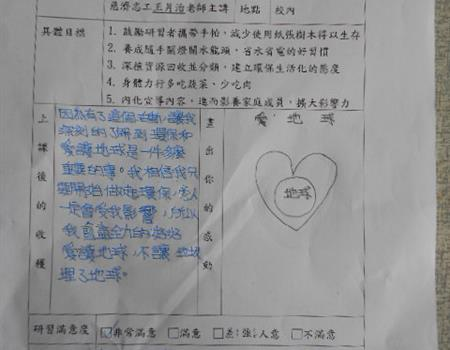 慈濟志工王月治老師主講 地點 校內
具體目標
1. 鼓勵研習者攜帶手帕，減少使用紙張樹木得以生存
2. 養成隨手關燈關水龍頭，省水省電的好習慣
3. 深植資源回收並分類，建立環保生活化的態度
4. 身體力行多吃蔬菜、少吃肉
5. 內化宣導內容，進而影響家庭成員，擴大影響力
上課後的收穫
因為有了這個活動，讓我
深刻的了解到環保和
愛護地球是一件多麼
重要的事。我相信我只
要開始做起環保，家人
一定會受我影響，所以
我會盡全力的好好
愛護地球，不讓垃圾
埋了地球。
畫出你的感動
愛 地 球
地球
研習滿意度 ☑非常滿意 □滿意 □差強人意 □不滿意